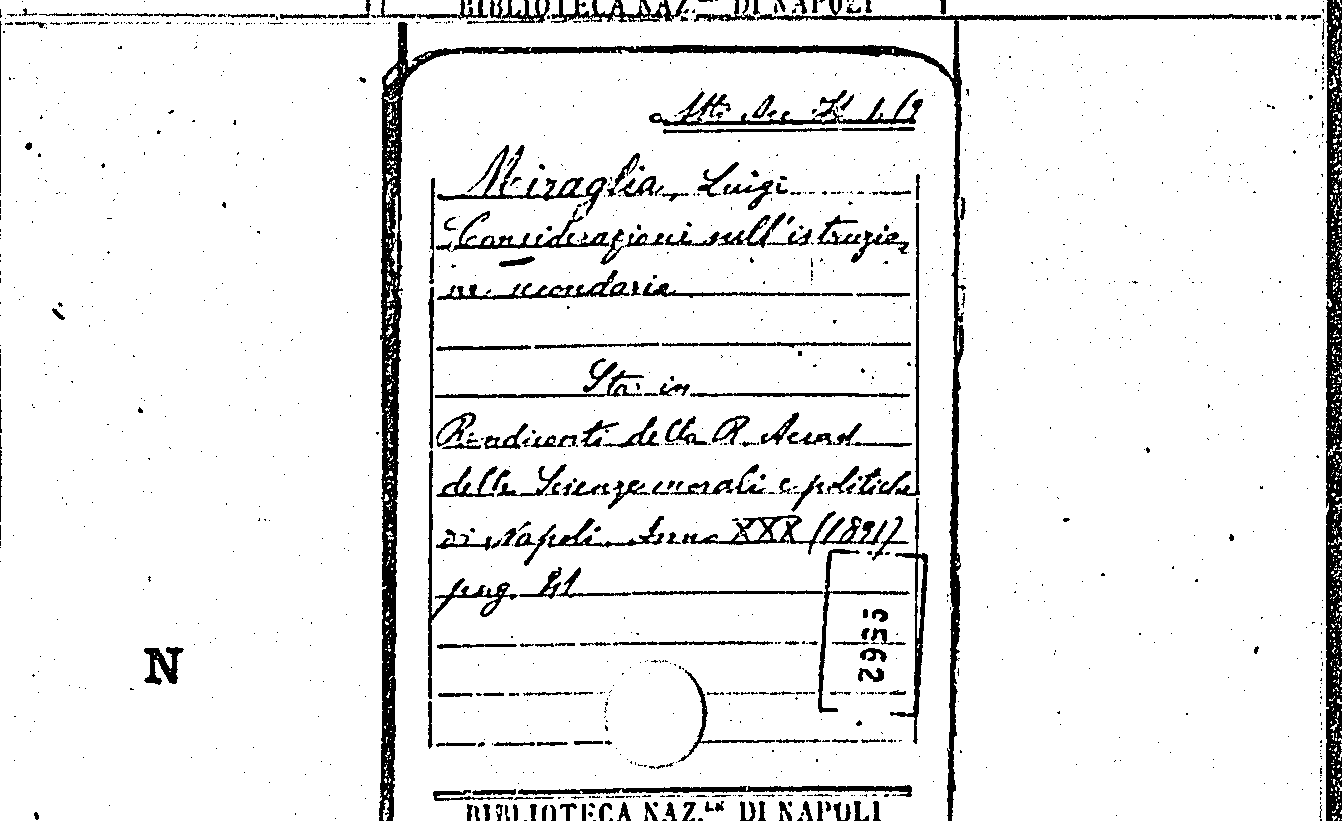 BIBLIOTECA NAZ. DI NAPOLI
Atti Acc
Miraglia, Luigi
Considerazioni sull'istruzio-
ne secondaria
Sta in
Rendiconti della R. Accad.
delle Scienze morali e politiche
di Napoli. Anno XXX (1891)
pag. 81
5562
N
BIBLIOTECA NAZ.LE DI NAPOLI